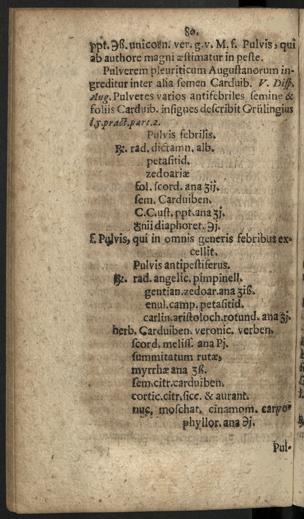 80.
ppt. ℈ß. unicorn. ver. g. v. M. f. Pulvis, qui
ab authore magni æstimatur in peste.
Pulverem pleuriticum Augustanorum in-
greditur inter alia semen Carduib. V. Disp.
Aug. Pulveres varios antifebriles semine &
foliis Carduib. insignes describit Grülingius
l. 5. pract. part. 2.
Pulvis febrilis.
℞. rad. dictamn. alb.
petasitid.
zedoariæ
fol. scord. ana ʒij.
sem. Carduiben.
C. C. ust. ppt. ana ʒj.
♁nii diaphoret. ℈j.
f. Pulvis, qui in omnis generis febribus ex-
cellit.
Pulvis antipestiferus.
℞. rad. angelic. pimpinell.
gentian. zedoar. ana ʒiß.
enul. camp. petasitid.
carlin. aristoloch. rotund. ana ʒj.
herb. Carduiben. veronic. verben.
scord. meliss. ana Pj.
summitatum rutæ,
myrrhæ ana ʒß.
sem. citr. carduiben.
cortic. citr. sicc. & aurant.
nuc. moschat. cinamom. caryo-
phyllor. ana ℈j.
Pul-